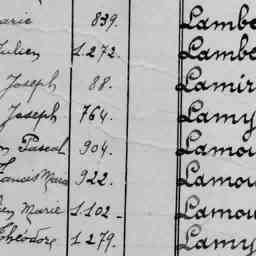 arie 839. Lambe
Julien 1.272. Lambe
Joseph 88. Lamir
Joseph 764. Lamy
Pascal 904. Lamou
Francis Marie 922. Lamou
Marie 1.102 Lamou
Théodore 1279. Lamy